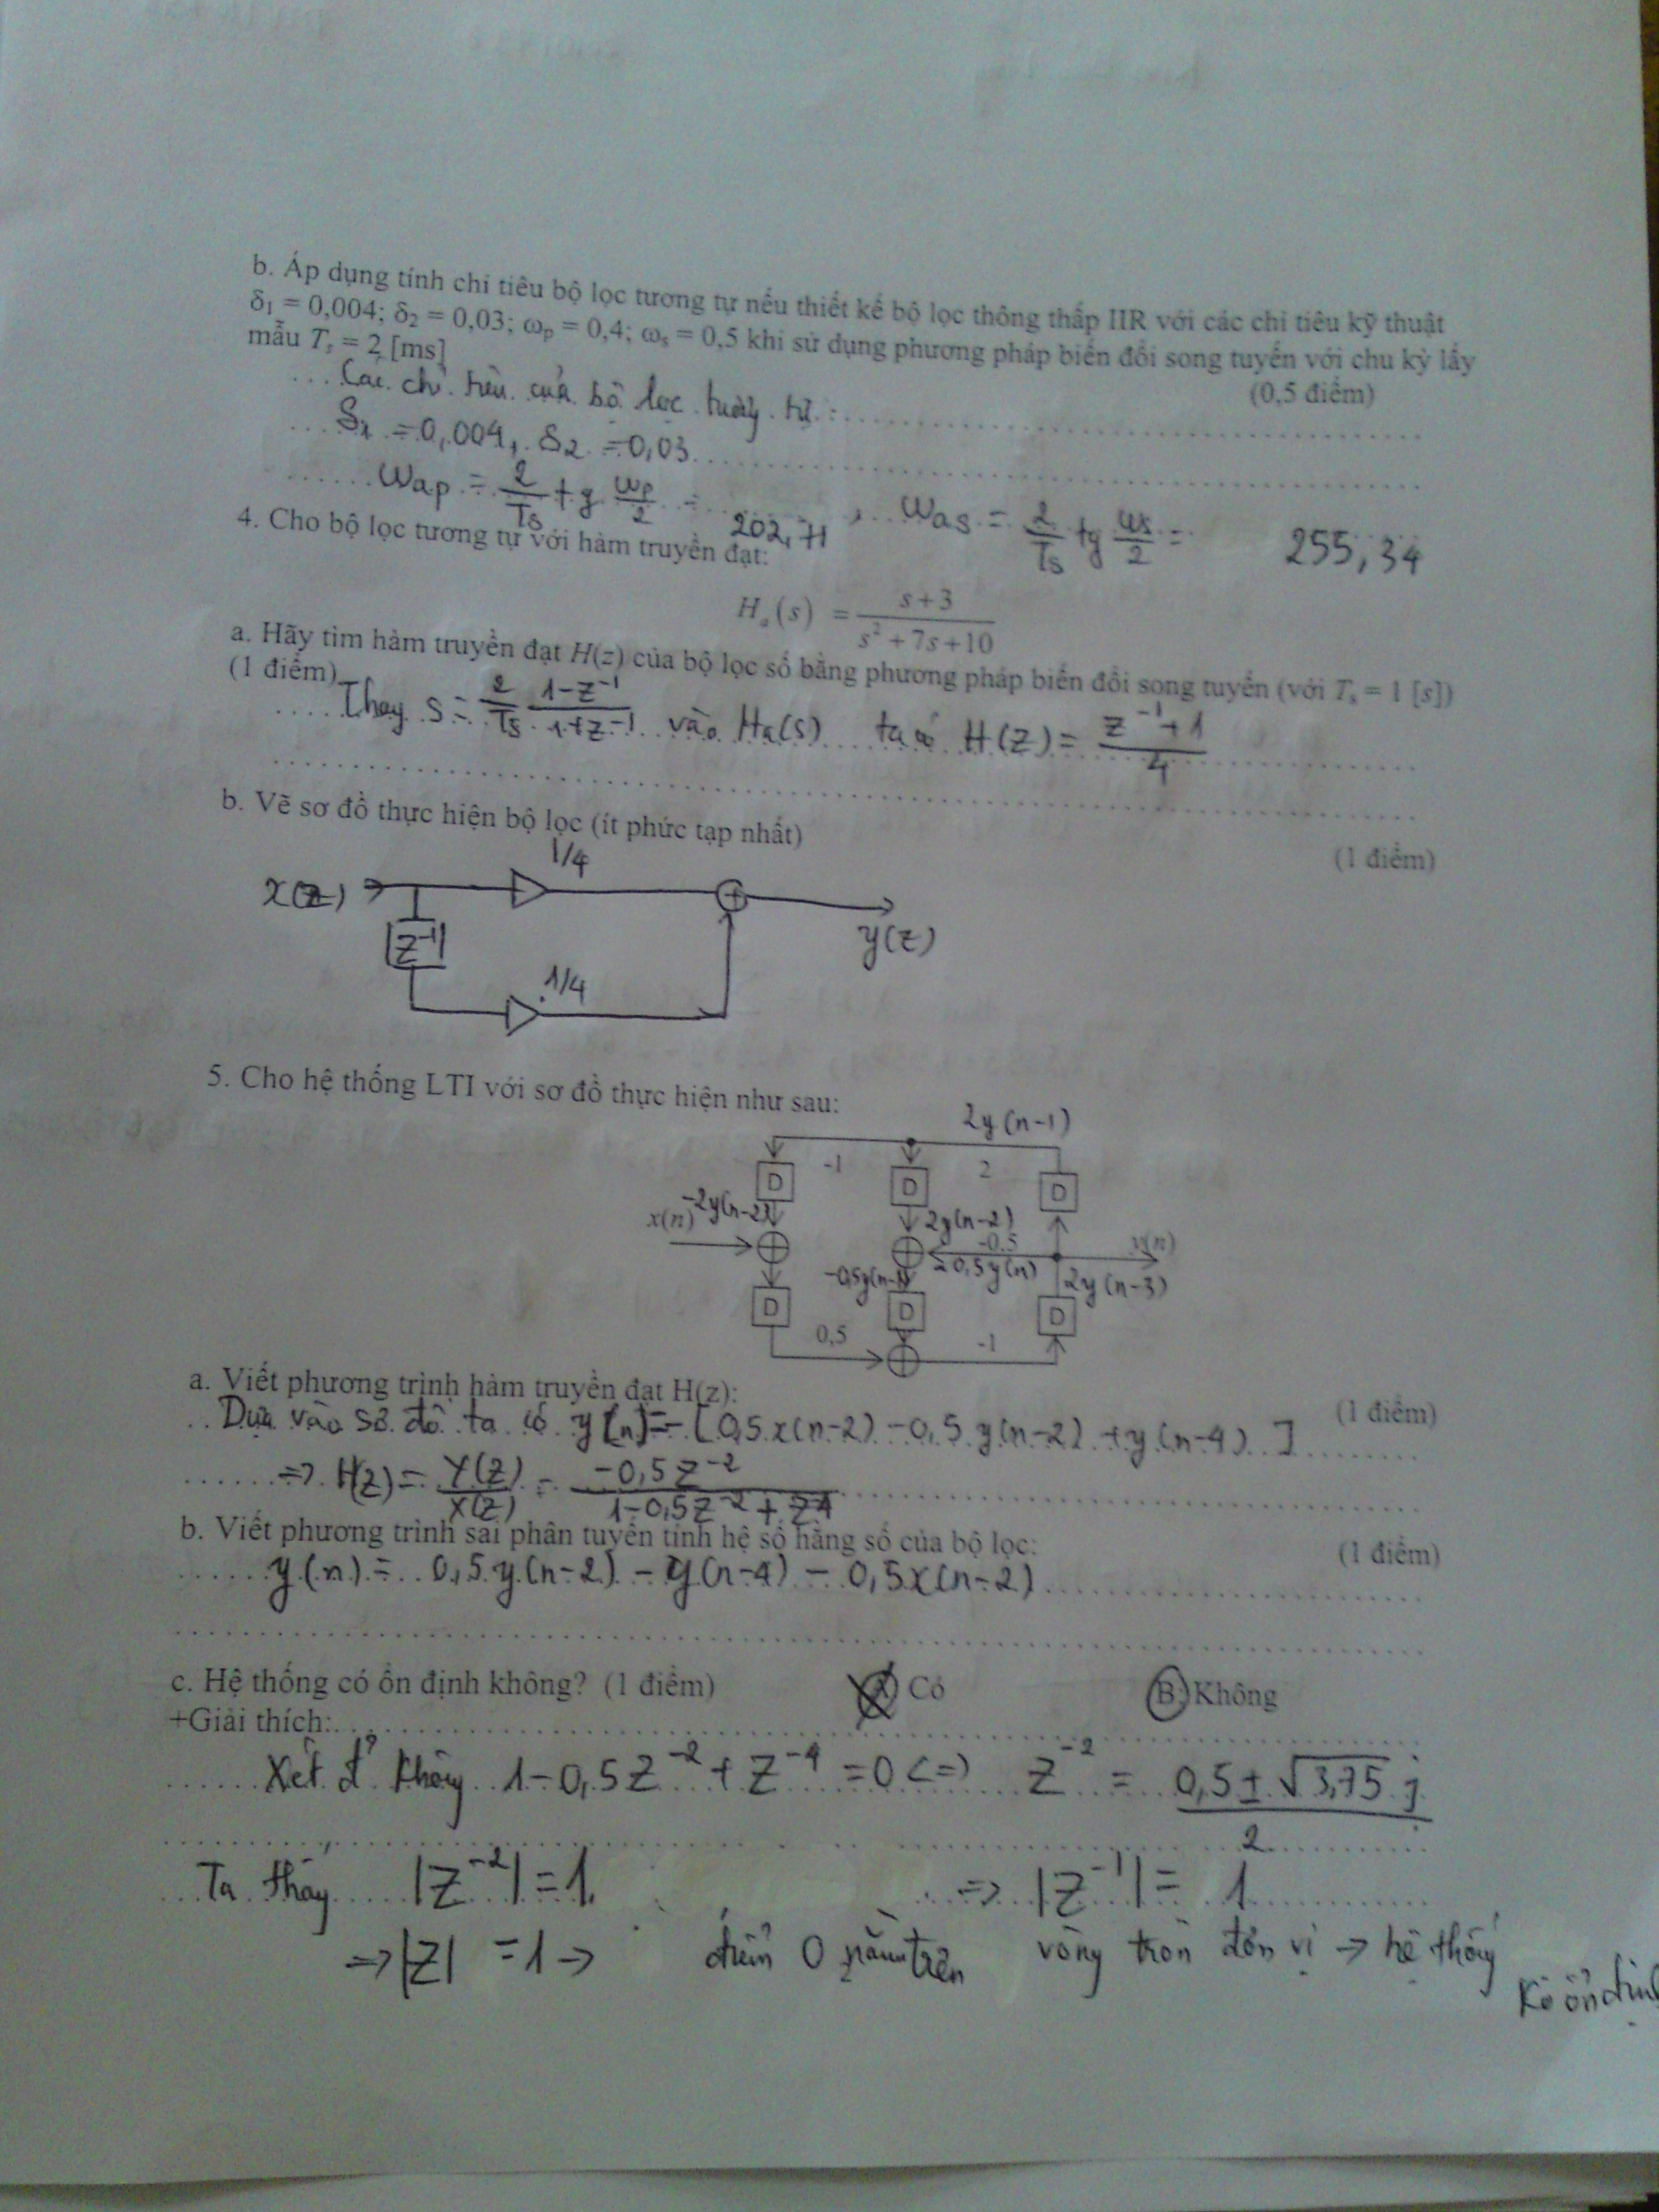 b. Áp dụng tính chỉ tiêu bộ lọc tương tự nếu thiết kế bộ lọc thông thấp IIR với các chỉ tiêu kỹ thuật
δ₁ = 0,004; δ₂ = 0,03; ωp = 0,4; ωs = 0,5 khi sử dụng phương pháp biến đổi song tuyến với chu kỳ lấy
mẫu Ts = 2 [ms]
(0,5 điểm)
Các chỉ tiêu của bộ lọc tương tự :
δ₁ = 0,004, δ₂ = 0,03
ωap = 2/Ts tg ωp/2 = 202,71 , ωas = 2/Ts tg ωs/2 = 255,34
4. Cho bộ lọc tương tự với hàm truyền đạt:
Ha(s) = (s+3)/(s²+7s+10)
a. Hãy tìm hàm truyền đạt H(z) của bộ lọc số bằng phương pháp biến đổi song tuyến (với Ts = 1 [s])
(1 điểm)
Thay s = 2/Ts (1-z⁻¹)/(1+z⁻¹) vào Ha(s) ta có H(z) = (z⁻¹+1)/4
b. Vẽ sơ đồ thực hiện bộ lọc (ít phức tạp nhất)
(1 điểm)
1/4
X(z)
z⁻¹
y(z)
1/4
5. Cho hệ thống LTI với sơ đồ thực hiện như sau:
2y(n-1)
-1 2
D D D
-2y(n-2)
x(n)
2y(n-2)
-0,5
y(n)
-0,5y(n)
2y(n-3)
D D D
0,5 -1
a. Viết phương trình hàm truyền đạt H(z):
(1 điểm)
Dựa vào sơ đồ ta có y(n) = - [0,5x(n-2) - 0,5y(n-2) + y(n-4)]
=> H(z) = Y(z)/X(z) = -0,5z⁻²/(1-0,5z⁻²+z⁻⁴)
b. Viết phương trình sai phân tuyến tính hệ số hằng số của bộ lọc:
(1 điểm)
y(n) = 0,5y(n-2) - y(n-4) - 0,5x(n-2)
c. Hệ thống có ổn định không? (1 điểm) Có B. Không
+Giải thích:
Xét đ' không 1-0,5z⁻²+z⁻⁴ = 0 <=> z⁻² = (0,5±√3,75 j)/2
Ta thấy |z⁻²| = 1 => |z⁻¹| = 1
=> |z| = 1 -> điểm 0 nằm trên vòng tròn đơn vị -> hệ thống